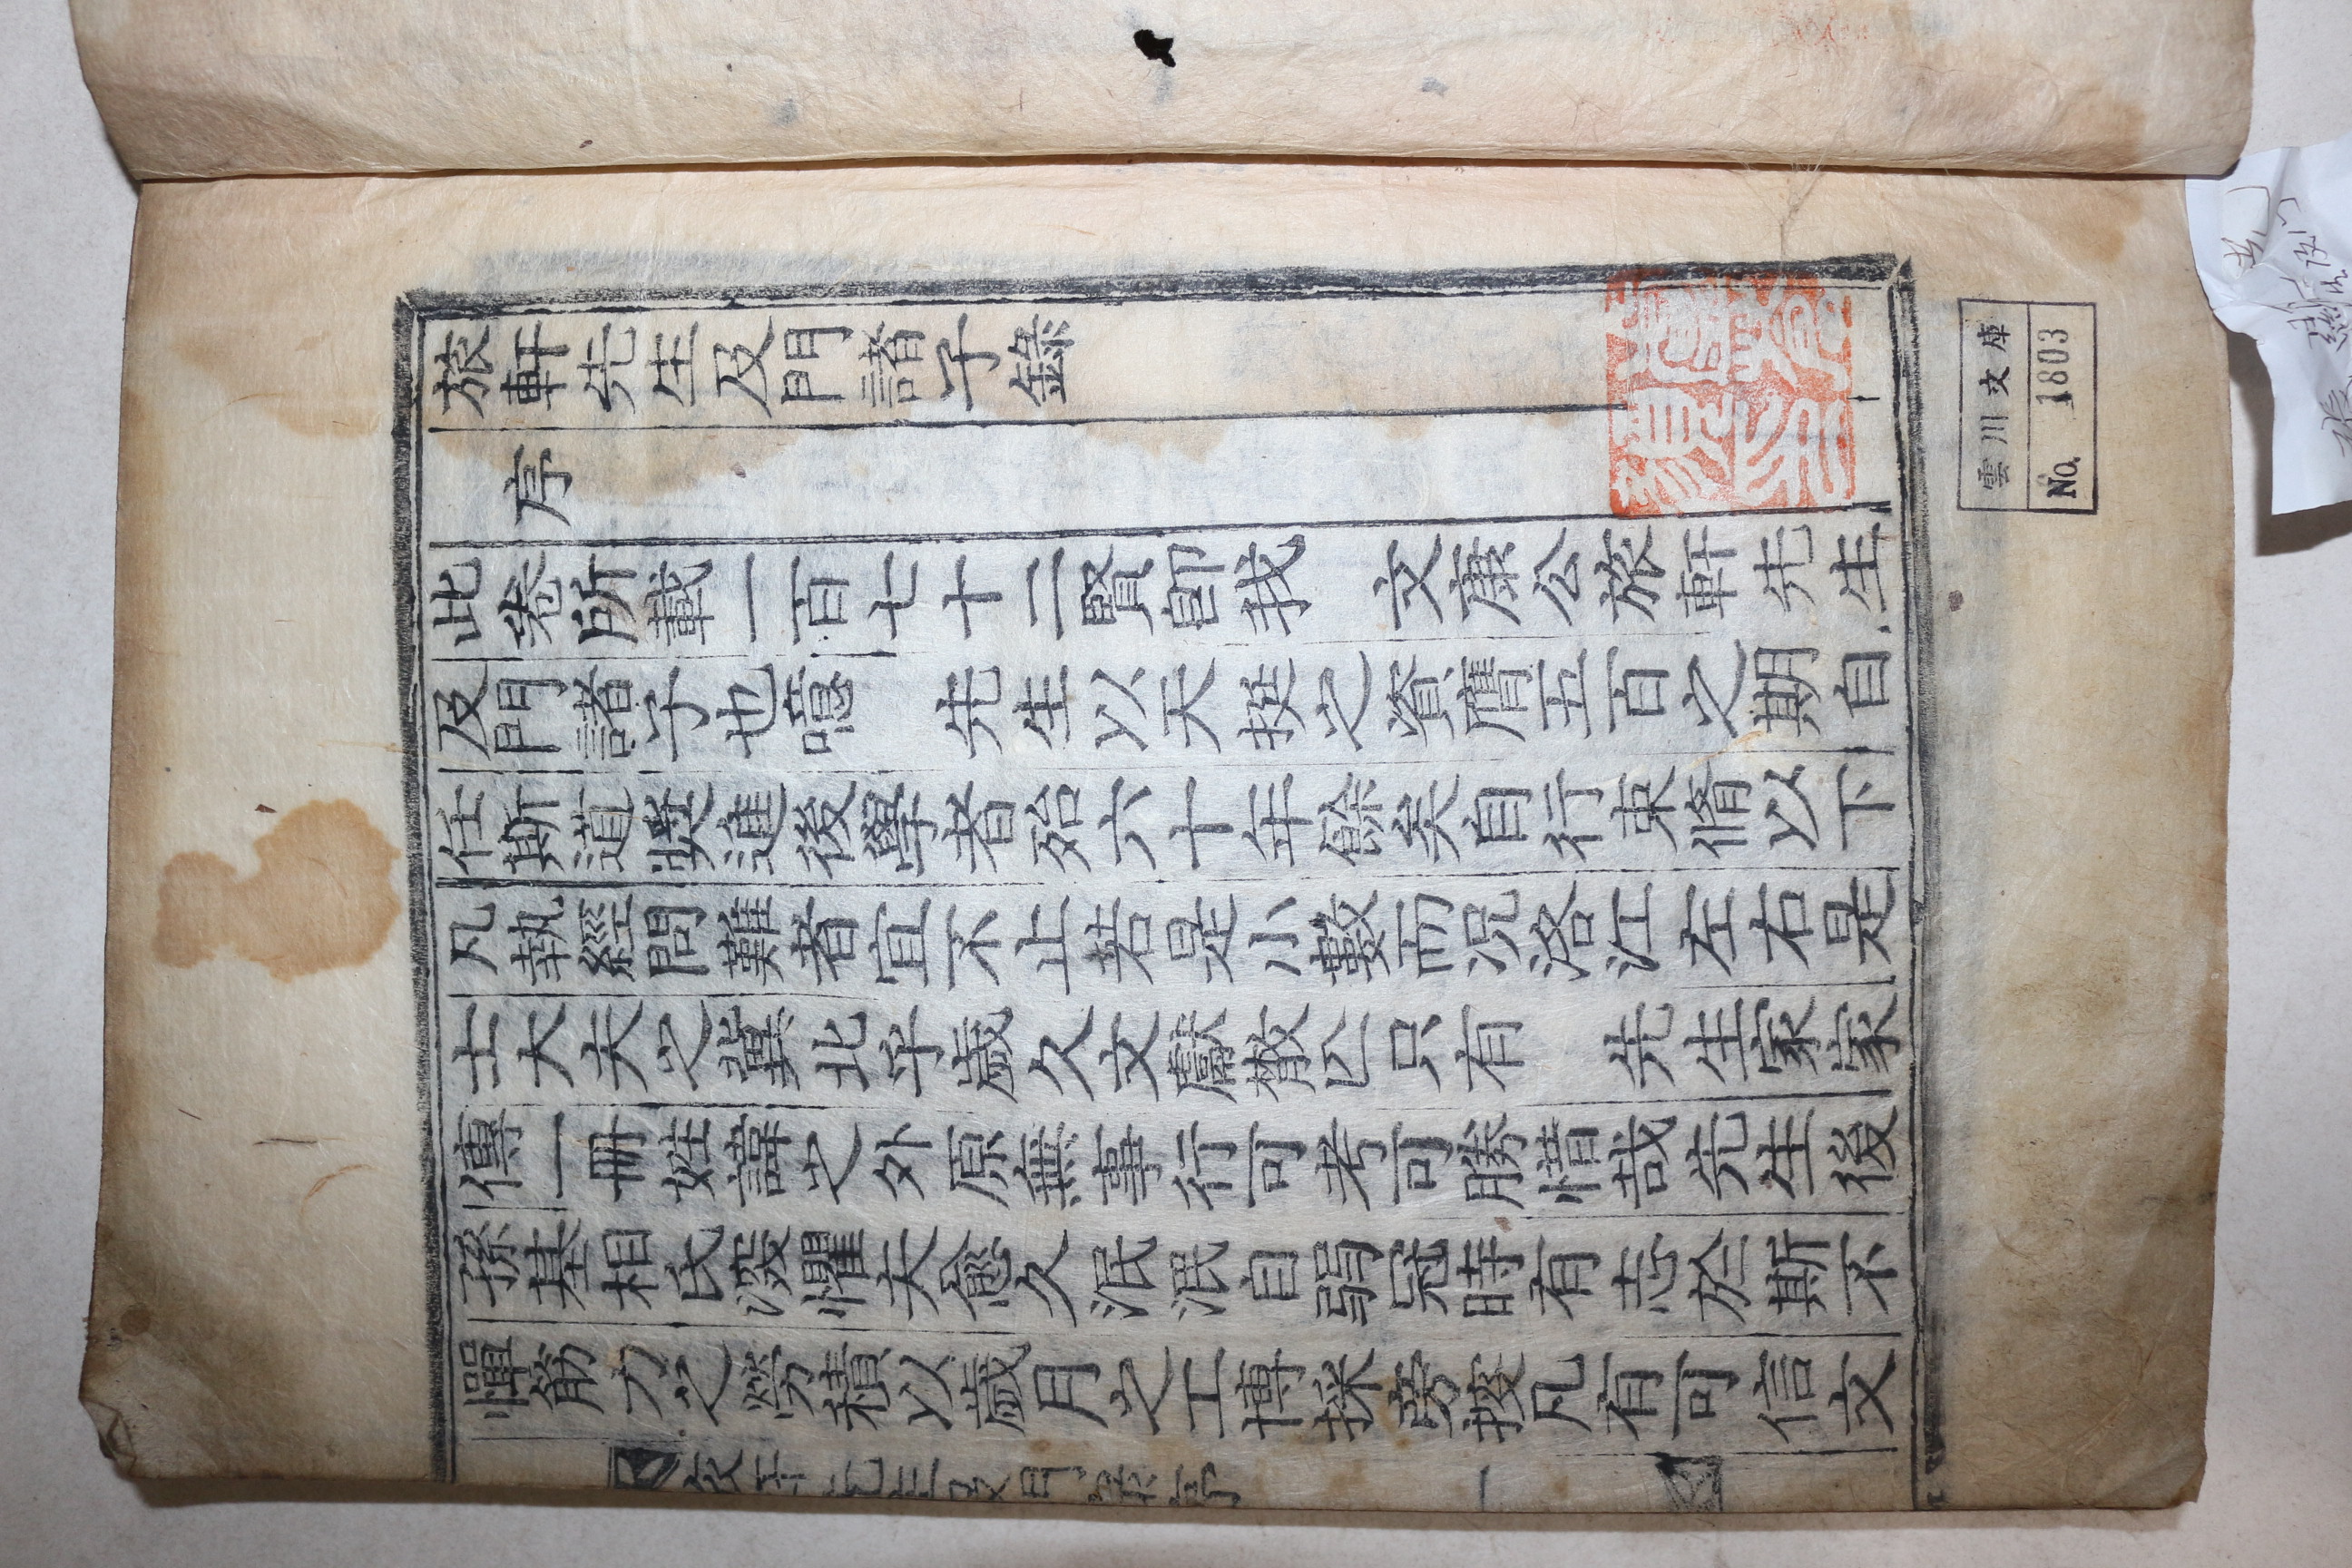 旅軒先生及門諸子錄
序
此卷所載一百七十二賢卽我 文康公旅軒先生
及門諸子也噫 先生以天挺之資膺五百之期自
任斯道奬進後學者殆六十年餘矣自行束脩以下
凡執經問難者宜不止若是小數而况洛江左右是
士大夫之冀北乎歲久文獻散亡只有 先生家家
傳一冊姓諱之外原無事行可考可勝惜哉先生後
孫基相氏深懼夫愈久泯泯自弱冠時有志於斯不
憚筋力之勞積以歲月之工博採旁搜凡有可信文
旅軒先生及門錄序
一
雲川文庫
No. 1803